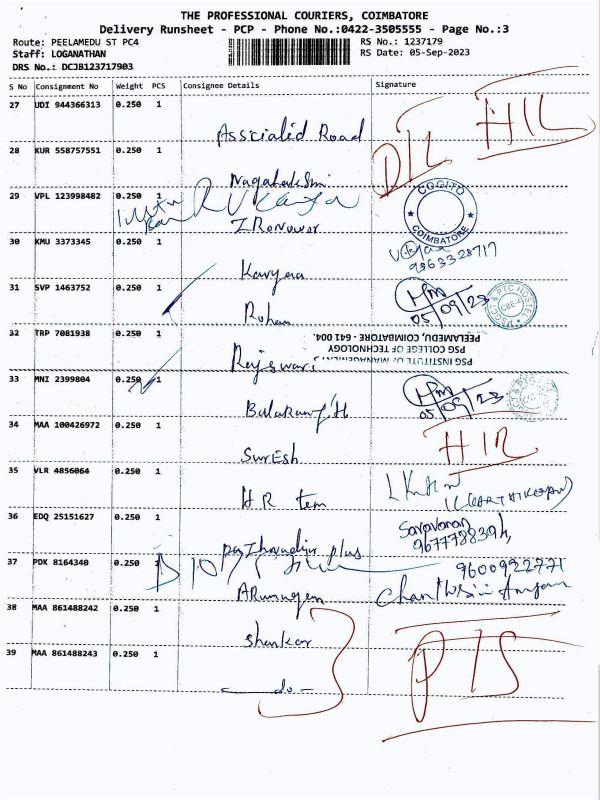 THE PROFESSIONAL COURIERS, COIMBATORE
Delivery Runsheet - PCP - Phone No.:0422-3505555 - Page No.:3
Route: PEELAMEDU ST PC4
RS No.: 1237179
Staff: LOGANATHAN
RS Date: 05-Sep-2023
DRS No.: DCJB123717903
S No Consignment No Weight PCS Consignee Details Signature
27 UDI 944366313 0.250 1
HIL
DIL
28 KUR 558757551 0.250 1
29 VPL 123998482 0.250 1
COGITO
COIMBATORE
30 KMU 3373345 0.250 1
9363328717
Kavyaa
31 SVP 1463752 0.250 1
05/09/23
Rohan
32 TRP 7081938 0.250 1
PEELAMEDU, COIMBATORE - 641 004.
PSG COLLEGE OF TECHNOLOGY
PSG INSTITUTE OF MANAGEMENT
33 MNI 2399804 0.250 1
05/09/23
34 MAA 100426972 0.250 1
SurEsh
35 VLR 4856064 0.250 1
H R tem
(KARTHIKEYAN)
36 EDQ 25151627 0.250 1
Saravanan
plus
37 PDK 8164340 0.250
9600922771
ARumugam
38 MAA 861488242 0.250 1
Shankar
39 MAA 861488243 0.250 1
- do -